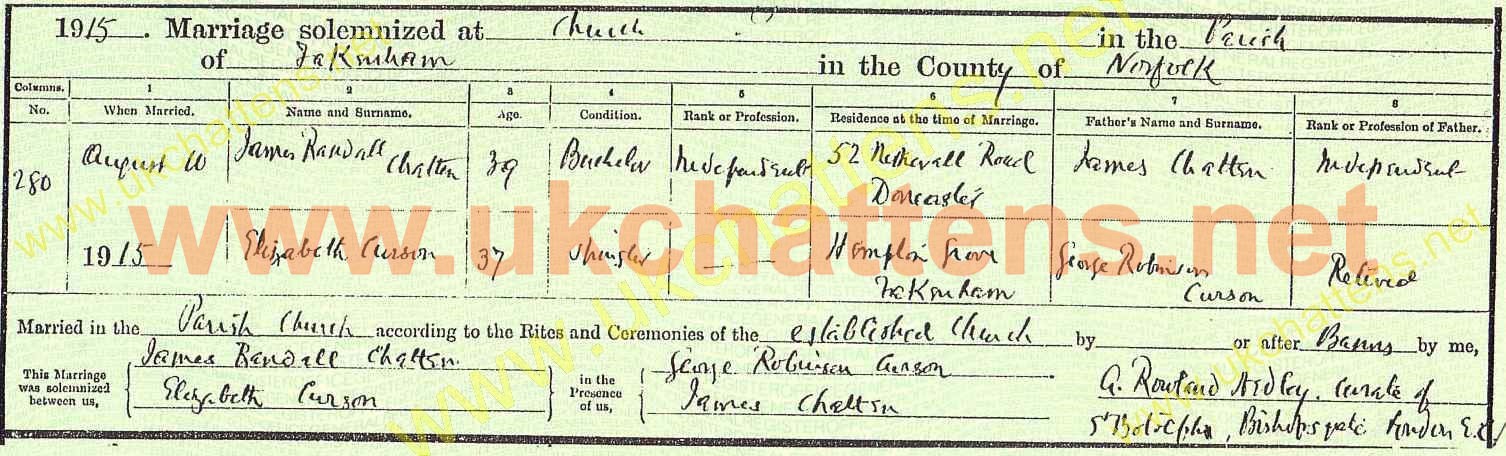 1915. Marriage solemnized at Church in the Parish
of Fakenham in the County of Norfolk
Columns. 1 2 3 4 5 6 7 8
No. When Married. Name and Surname. Age. Condition. Rank or Profession. Residence at the time of Marriage. Father's Name and Surname. Rank or Profession of Father.
280 August 10 James Randall Chatten 39 Bachelor Independent 52 Netherall Road Doncaster James Chatten Independent
1915 Elizabeth Curson 37 Spinster — Hempton Grove Fakenham George Robinson Curson Retired
www.ukchattens.net
Married in the Parish Church according to the Rites and Ceremonies of the established Church by or after Banns by me,
This Marriage was solemnized between us, James Randall Chatten Elizabeth Curson in the Presence of us, George Robinson Curson James Chatten
A. Rowland Hedley. Curate of
St Botolphs, Bishopsgate London E.C.